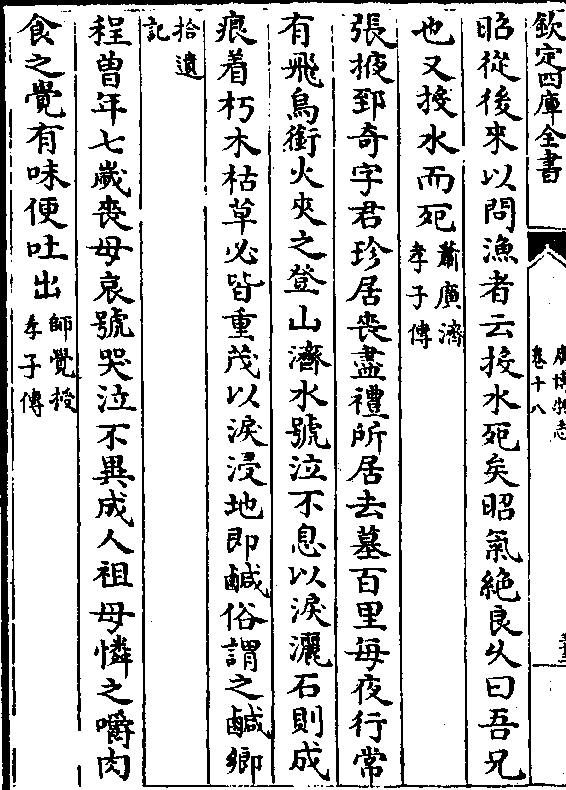 欽定四庫全書
廣博物志
卷十八
昭從後來以問漁者云投水死矣昭氣絶良久曰吾兄
也又投水而死蕭廣濟孝子傳
張掖郅奇字君珍居喪盡禮所居去墓百里每夜行常
有飛鳥銜火夾之登山濟水號泣不息以淚灑石則成
痕着朽木枯草必皆重茂以淚浸地即鹹俗謂之鹹鄉
拾遺記
程曾年七歲喪母哀號哭泣不異成人祖母憐之嚼肉
食之覺有味便吐出師覺授孝子傳